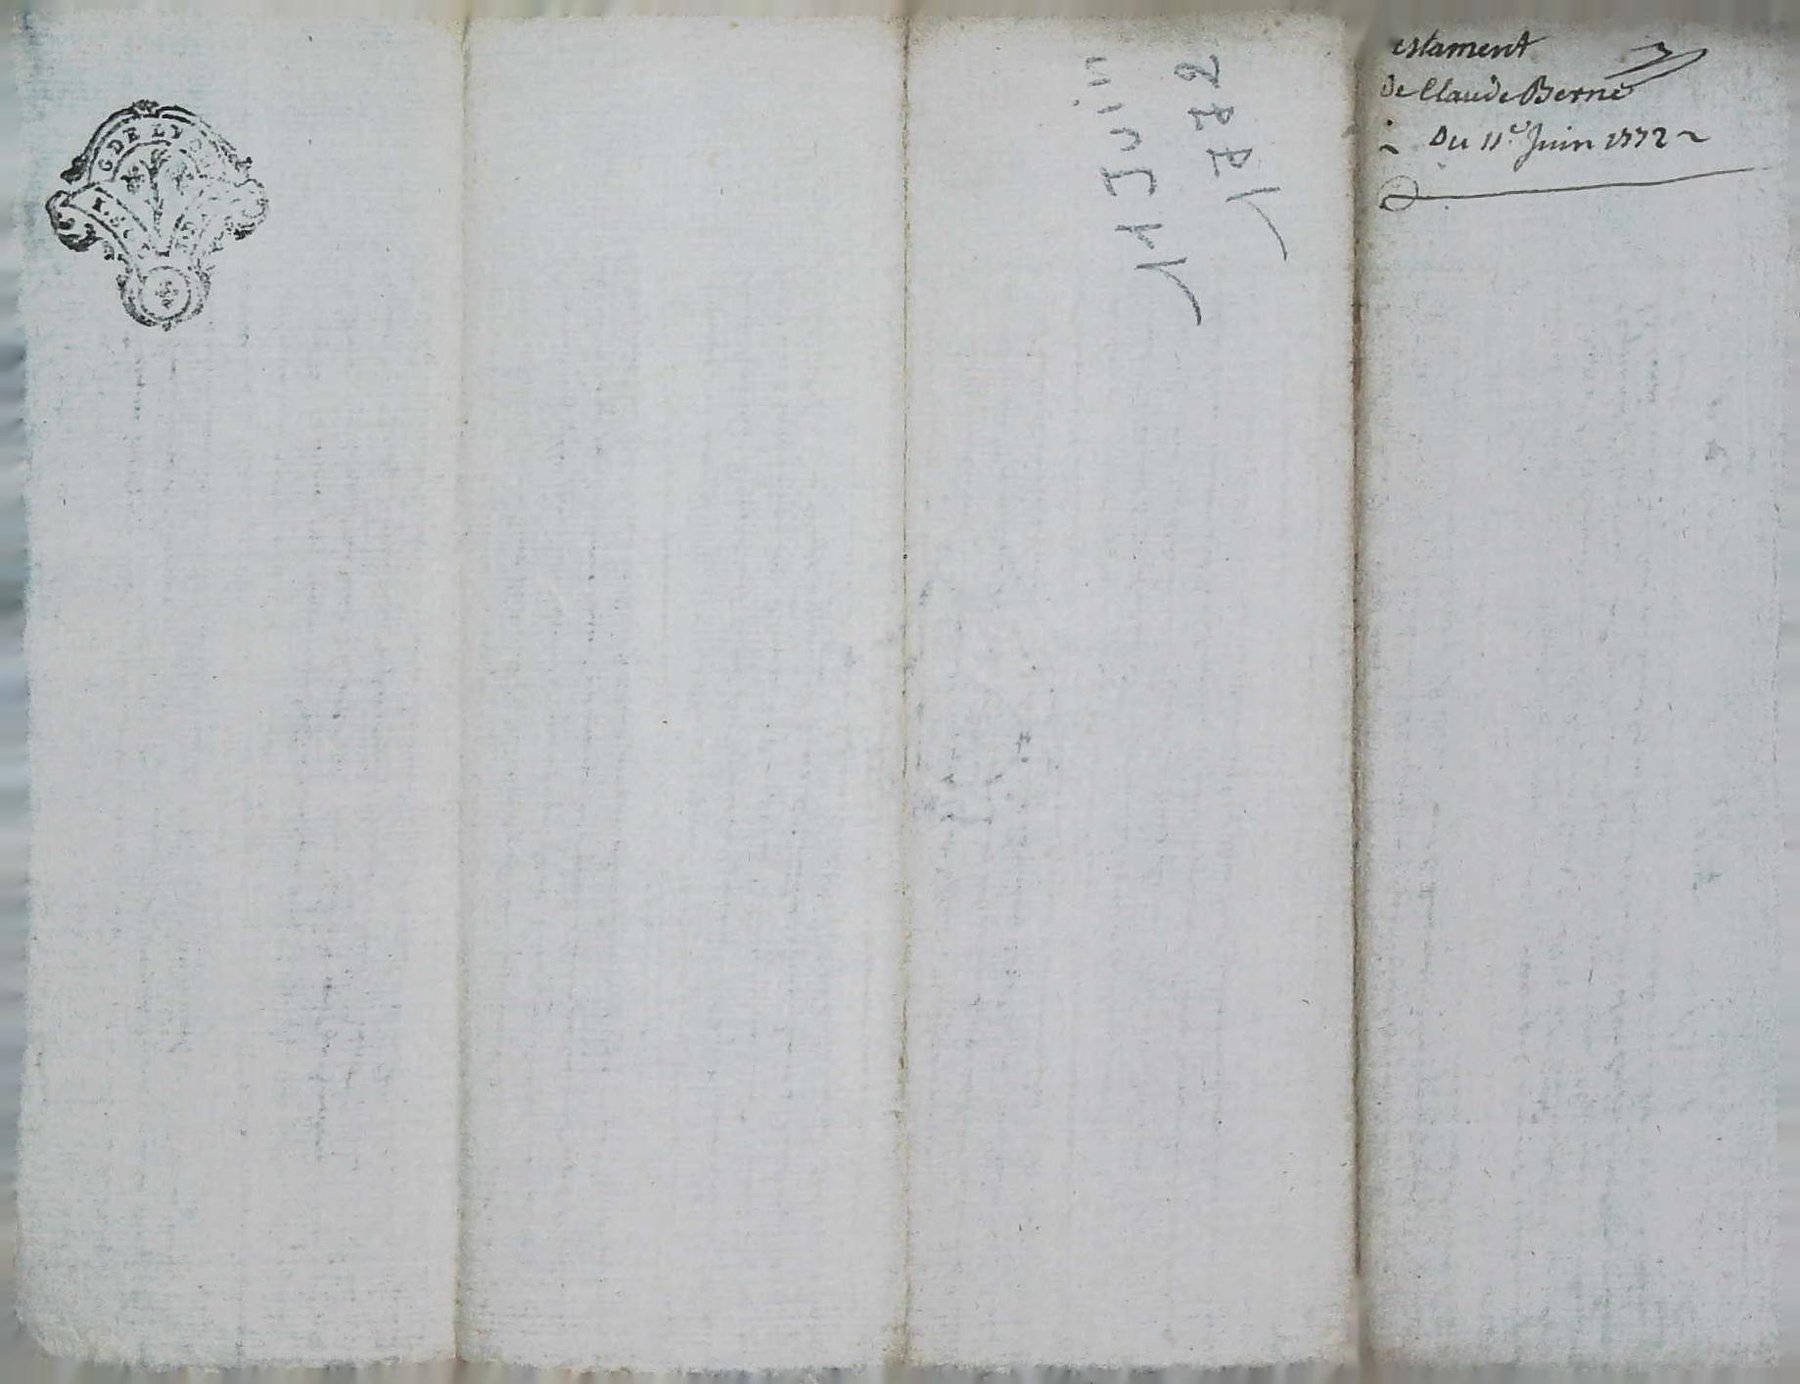 G DE LY
11 Juin
1772
estament
de Claude Berne
Du 11e Juin 1772